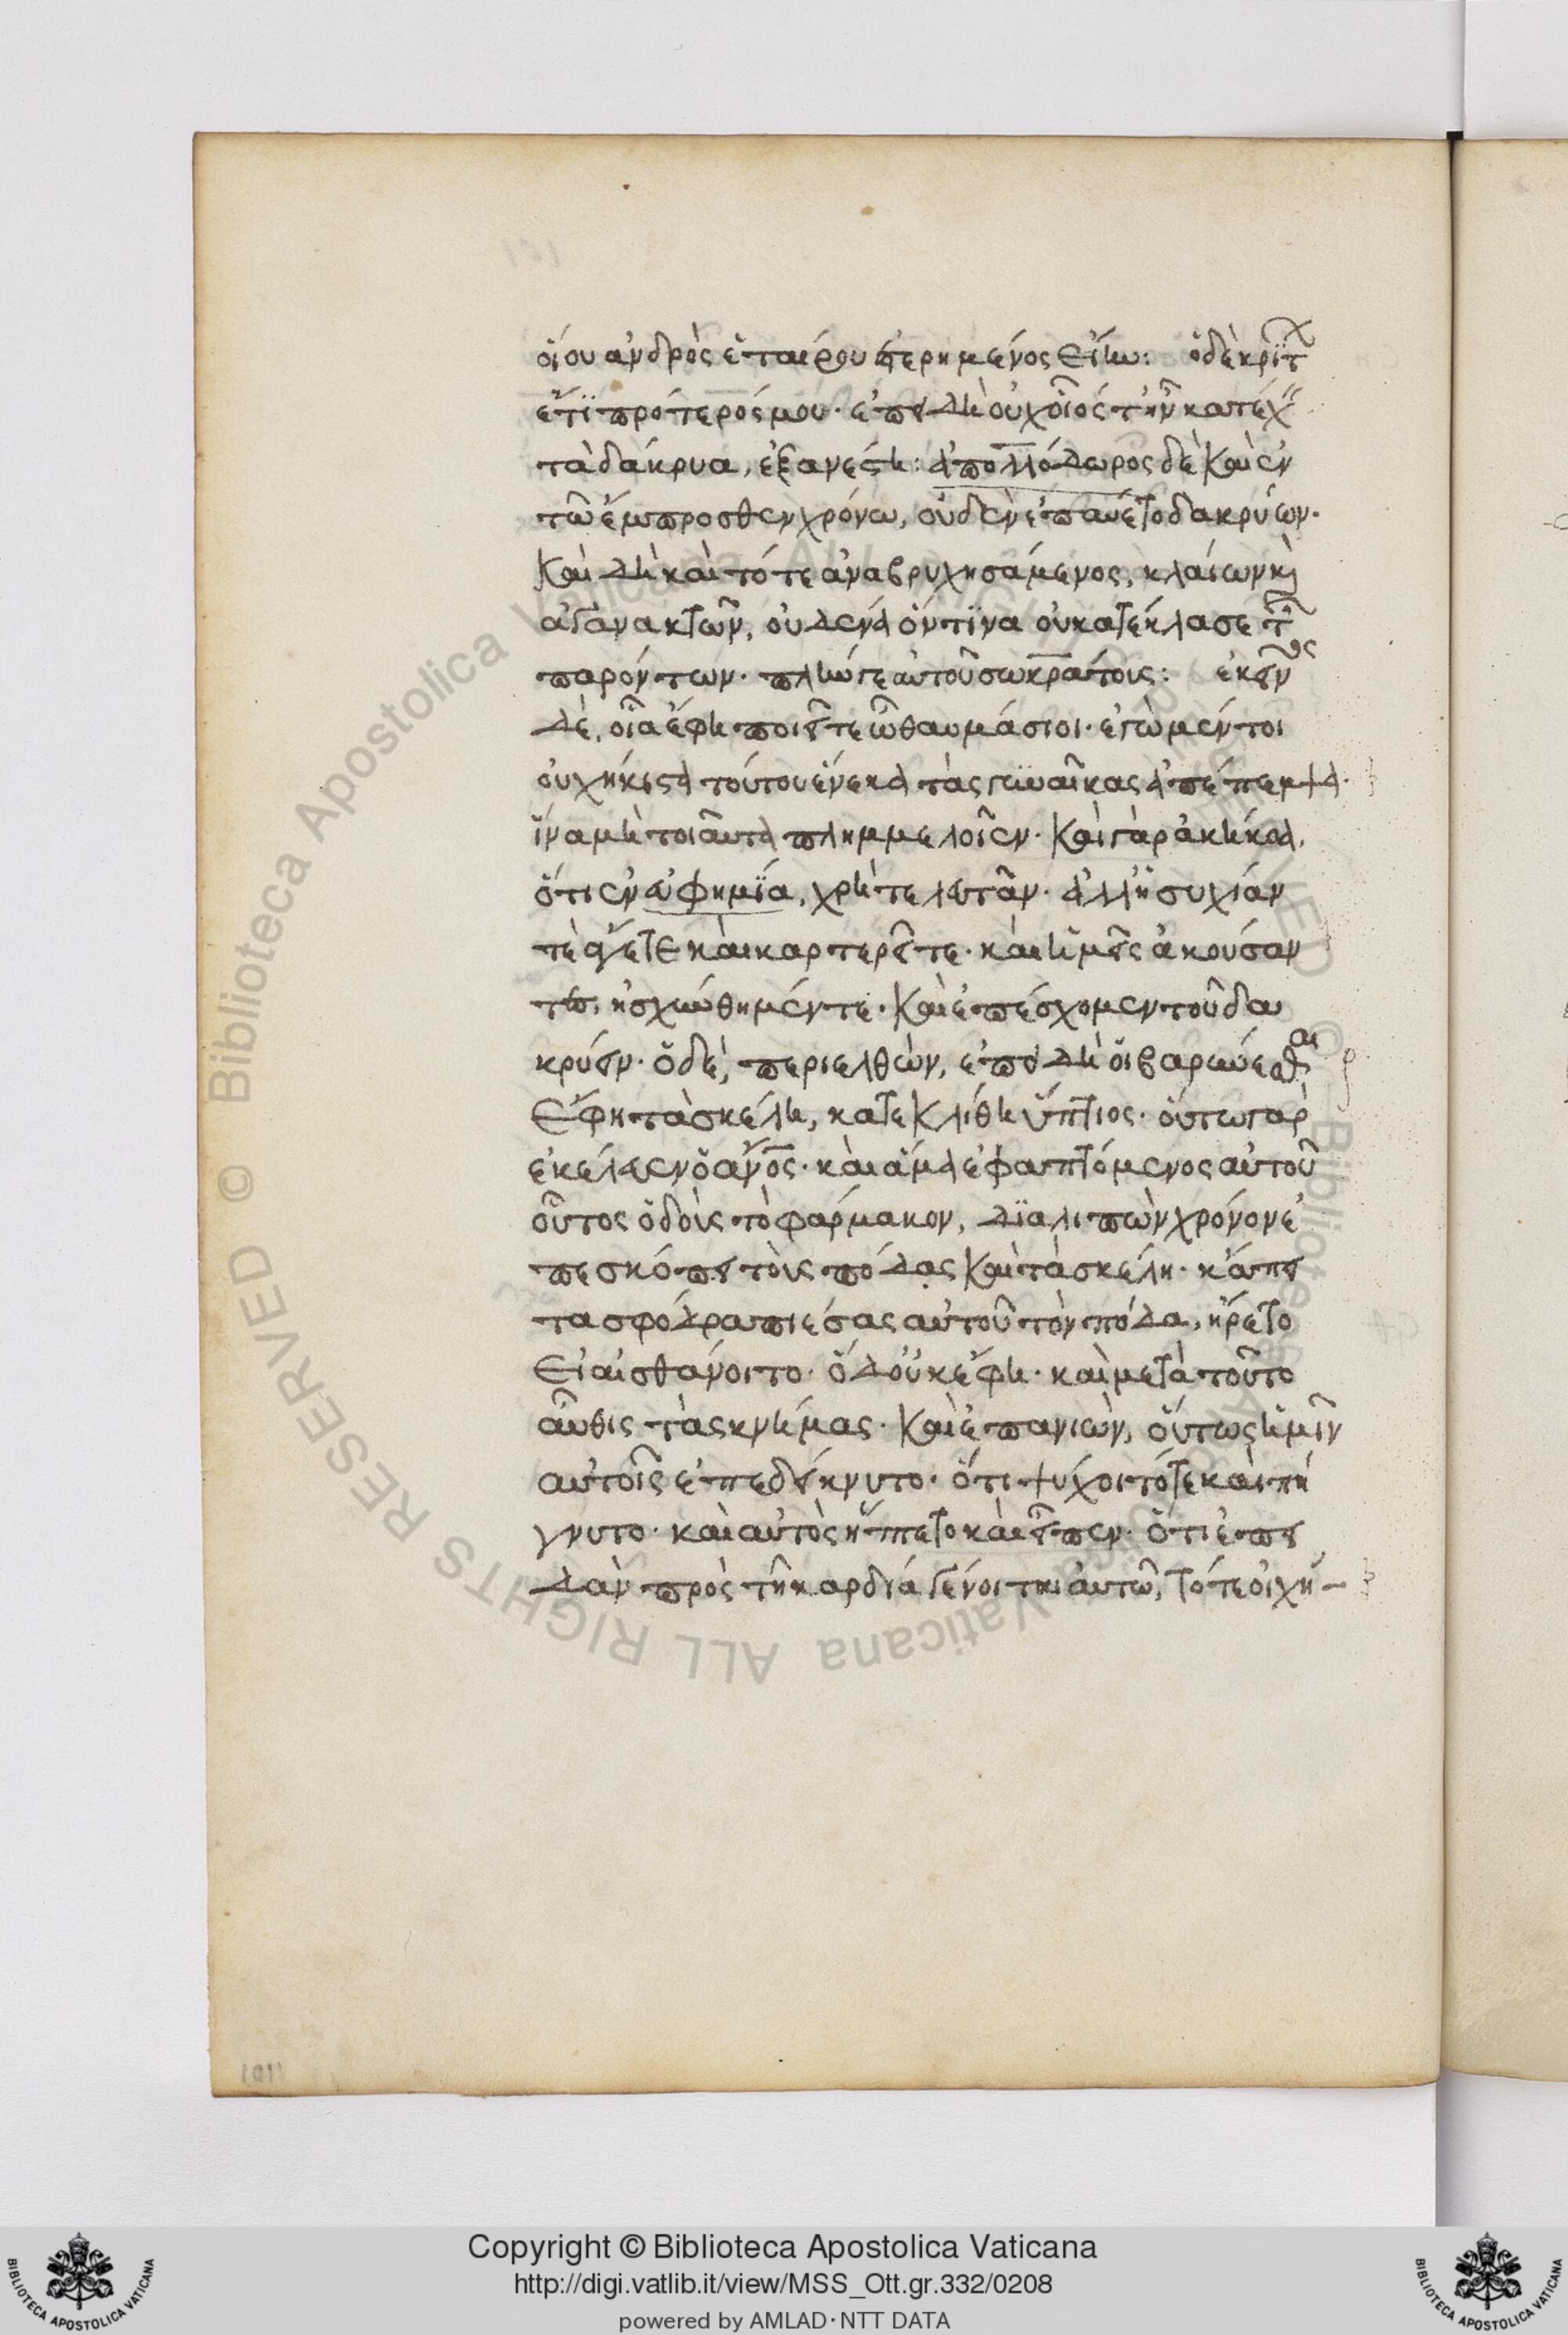 οἵου ἀνδρὸς ἑταίρου ἐστερημένος εἴην: ὁ δὲ κρίτων
ἔτι πρότερός μου· ἐπειδὴ οὐχ οἷός τ' ἦν κατέχειν
τὰ δάκρυα, ἐξανέστη: ἀπολλόδωρος δὲ καὶ ἐν
τῶ ἔμπροσθεν χρόνω, οὐδὲν ἐπαύετο δακρύων·
καὶ δὴ καὶ τότε ἀναβρυχησάμενος, κλαίων καὶ
ἀγανακτῶν, οὐδένα ὅντινα οὐ κατέκλασε τῶν
παρόντων· πλήν γε αὐτοῦ σωκράτους: ἐκεῖνος
δέ, οἷα ἔφη ποιεῖτε ὦ θαυμάσιοι· ἐγὼ μέντοι
οὐχ ἥκιστα τούτου ἕνεκα τὰς γυναῖκας ἀπέπεμψα·
ἵνα μὴ τοιαῦτα πλημμελοῖεν· καὶ γὰρ ἀκήκοα,
ὅτι ἐν εὐφημία, χρὴ τελευτᾶν· ἀλλ' ἡσυχίαν
τὲ ἄγετε καὶ καρτερεῖτε· καὶ ἡμεῖς ἀκούσαν
τες, ἠσχύνθημέν τε· καὶ ἐπέσχομεν τοῦ δα
κρύειν· ὁ δὲ, περιελθὼν, ἐπειδὴ οἱ βαρύνεσθαι
ἔφη τὰ σκέλη, κατεκλίθη ὕπτιος· οὕτω γὰρ
ἐκέλευεν ὁ ἄνος· καὶ ἅμα ἐφαπτόμενος αὐτοῦ
οὗτος ὁ δοὺς τὸ φάρμακον, διαλιπὼν χρόνον ἐ
πεσκόπει τοὺς πόδας καὶ τὰ σκέλη· κἄπει
τα σφόδρα πιέσας αὐτοῦ τὸν πόδα, ἤρετο
εἰ αἰσθάνοιτο· ὁ δ' οὐκ ἔφη· καὶ μετὰ τοῦτο
αὖθις τὰς κνήμας· καὶ ἐπανιὼν, οὕτως ἡμῖν
αὐτοῖς ἐπεδείκνυτο· ὅτι ψύχοιτό τε καὶ πή
γνυτο· καὶ αὐτὸς ἥπτετο καὶ εἶπεν· ὅτι ἐπει
δὰν πρὸς τῆ καρδία γένηται αὐτῶ, τότε οἰχή-
Copyright © Biblioteca Apostolica Vaticana
http://digi.vatlib.it/view/MSS_Ott.gr.332/0208
powered by AMLAD·NTT DATA